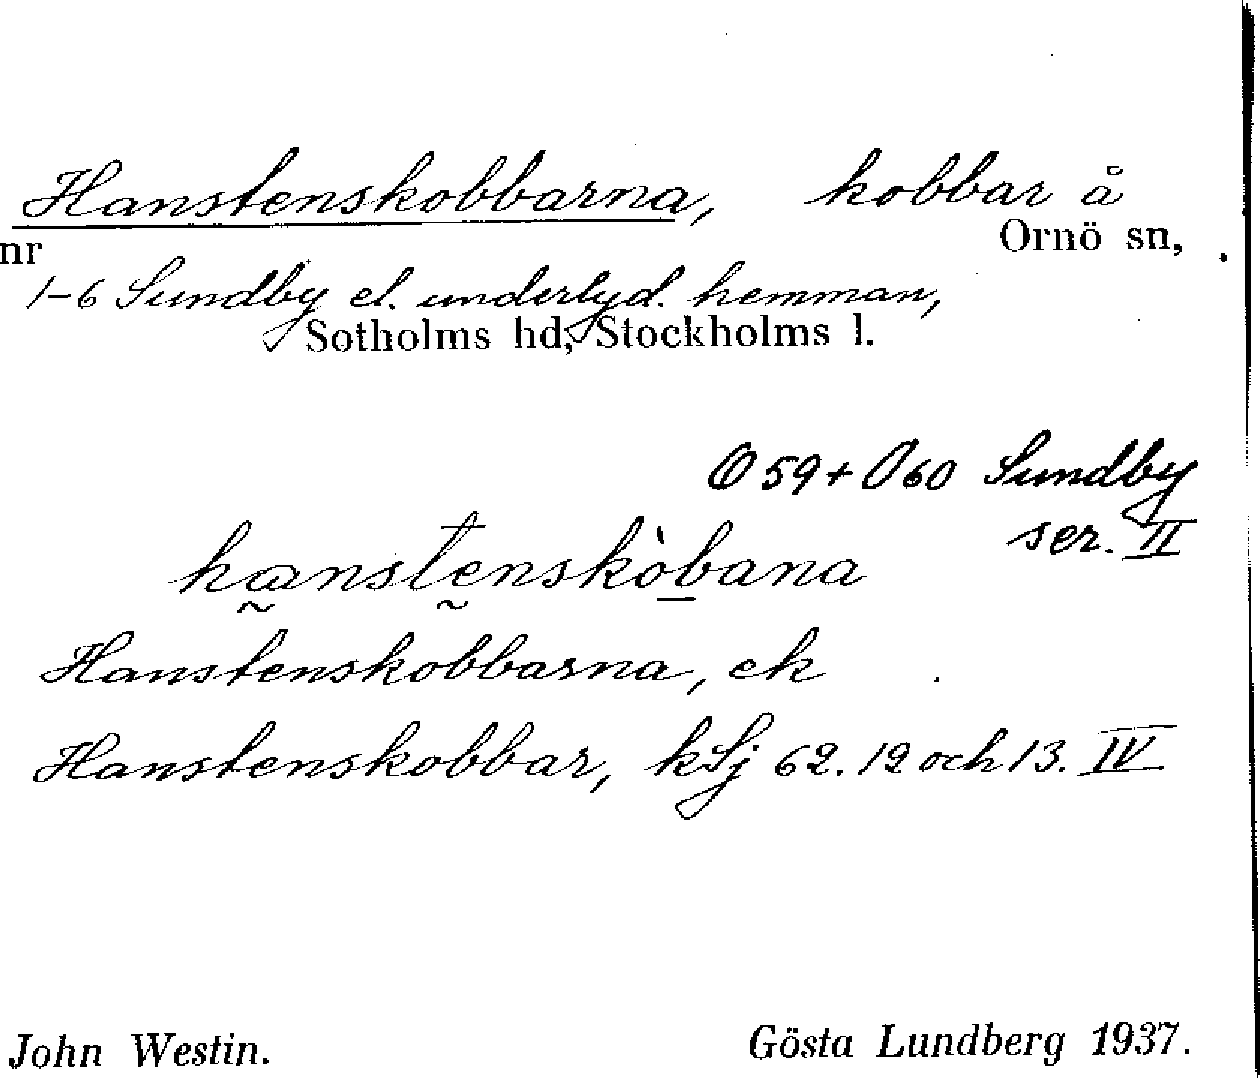 Hanstenskobbarna, kobbar å
Ornö sn,
nr
1-6 Sundby el. underlyd. hemman,
Sotholms hd, Stockholms l.
O 59 + O 60 Sundby
ser. II
hanstenskòbana
Hanstenskobbarna, ek
Hanstenskobbar, kSj 62. 12 och 13. IV
John Westin. Gösta Lundberg 1937.